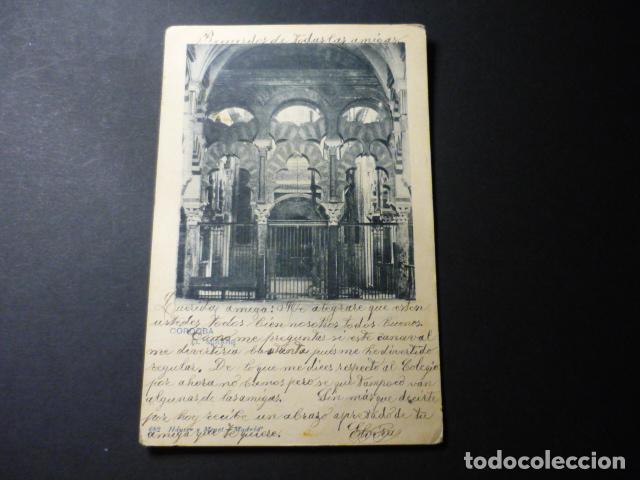 Recuerdos de todas las amigas
Querida amiga: Me alegrare que esten
ustedes todos bien nosotros todos buenos.
CORDOBA
me preguntas si este carnaval
me divertiria bastante pues me he divertido
regular. De lo que me dices respecto al Colegio
por ahora no bamos pero se que tampoco van
algunas de las amigas. Sin mas que decirte
por hoy recibe un abrazo apretado de tu
amiga que te quiere.
652 Hauser y Menet.-Madrid
todocoleccion.net